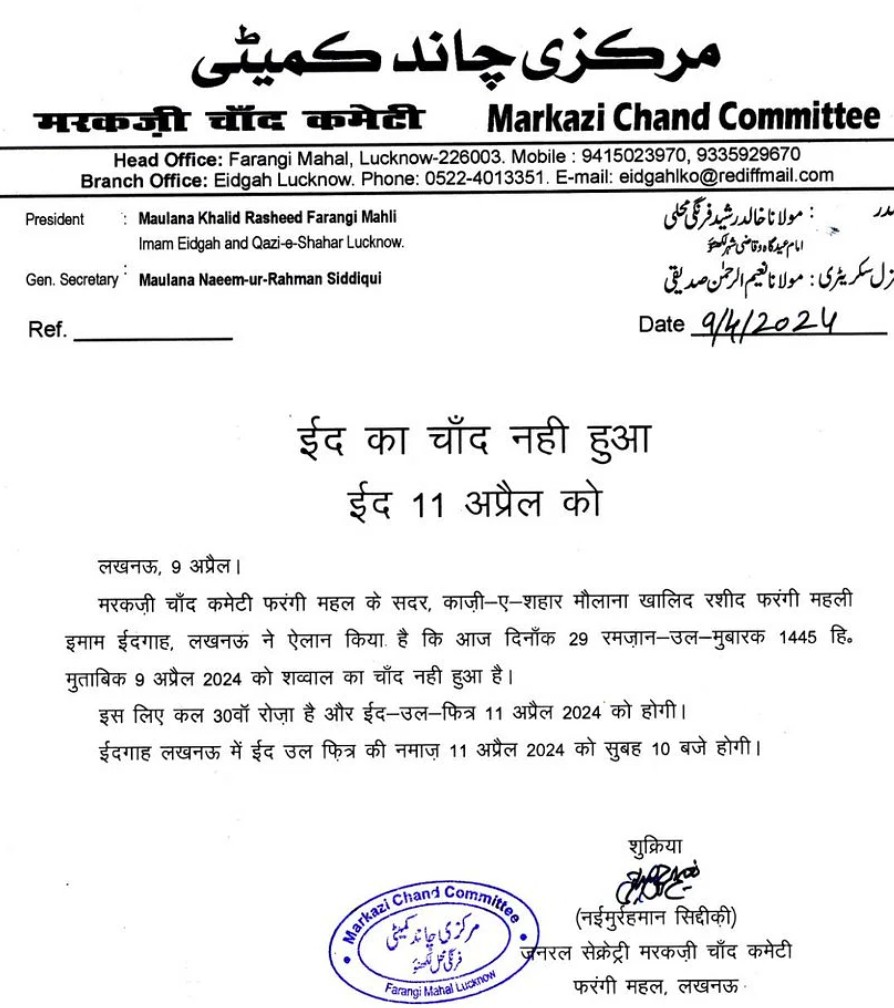 مرکزی چاند کمیٹی
मरकज़ी चाँद कमेटी Markazi Chand Committee
Head Office: Farangi Mahal, Lucknow-226003. Mobile : 9415023970, 9335929670
Branch Office: Eidgah Lucknow. Phone: 0522-4013351. E-mail: eidgahlko@rediffmail.com
President : Maulana Khalid Rasheed Farangi Mahli
Imam Eidgah and Qazi-e-Shahar Lucknow.
Gen. Secretary : Maulana Naeem-ur-Rahman Siddiqui
: مولانا خالد رشید فرنگی محلی
امام عیدگاہ و قاضی شہر لکھنؤ
سکریٹری : مولانا نعیم الرحمٰن صدیقی
Ref.
Date 9/4/2024
ईद का चाँद नही हुआ
ईद 11 अप्रैल को
लखनऊ, 9 अप्रैल।
मरकज़ी चाँद कमेटी फरंगी महल के सदर, काज़ी–ए–शहार मौलाना खालिद रशीद फरंगी महली
इमाम ईदगाह, लखनऊ ने ऐलान किया है कि आज दिनाँक 29 रमज़ान–उल–मुबारक 1445 हि॰
मुताबिक 9 अप्रैल 2024 को शव्वाल का चाँद नही हुआ है।
इस लिए कल 30वॉ रोज़ा है और ईद–उल–फित्र 11 अप्रैल 2024 को होगी।
ईदगाह लखनऊ में ईद उल फ़ित्र की नमाज़ 11 अप्रैल 2024 को सुबह 10 बजे होगी।
शुक्रिया
(नईमुर्रहमान सिद्दीक़ी)
जनरल सेक्रेट्री मरकज़ी चाँद कमेटी
फरंगी महल, लखनऊ
Markazi Chand Committee
مرکزی چاند کمیٹی
فرنگی محل لکھنؤ
Farangi Mahal Lucknow